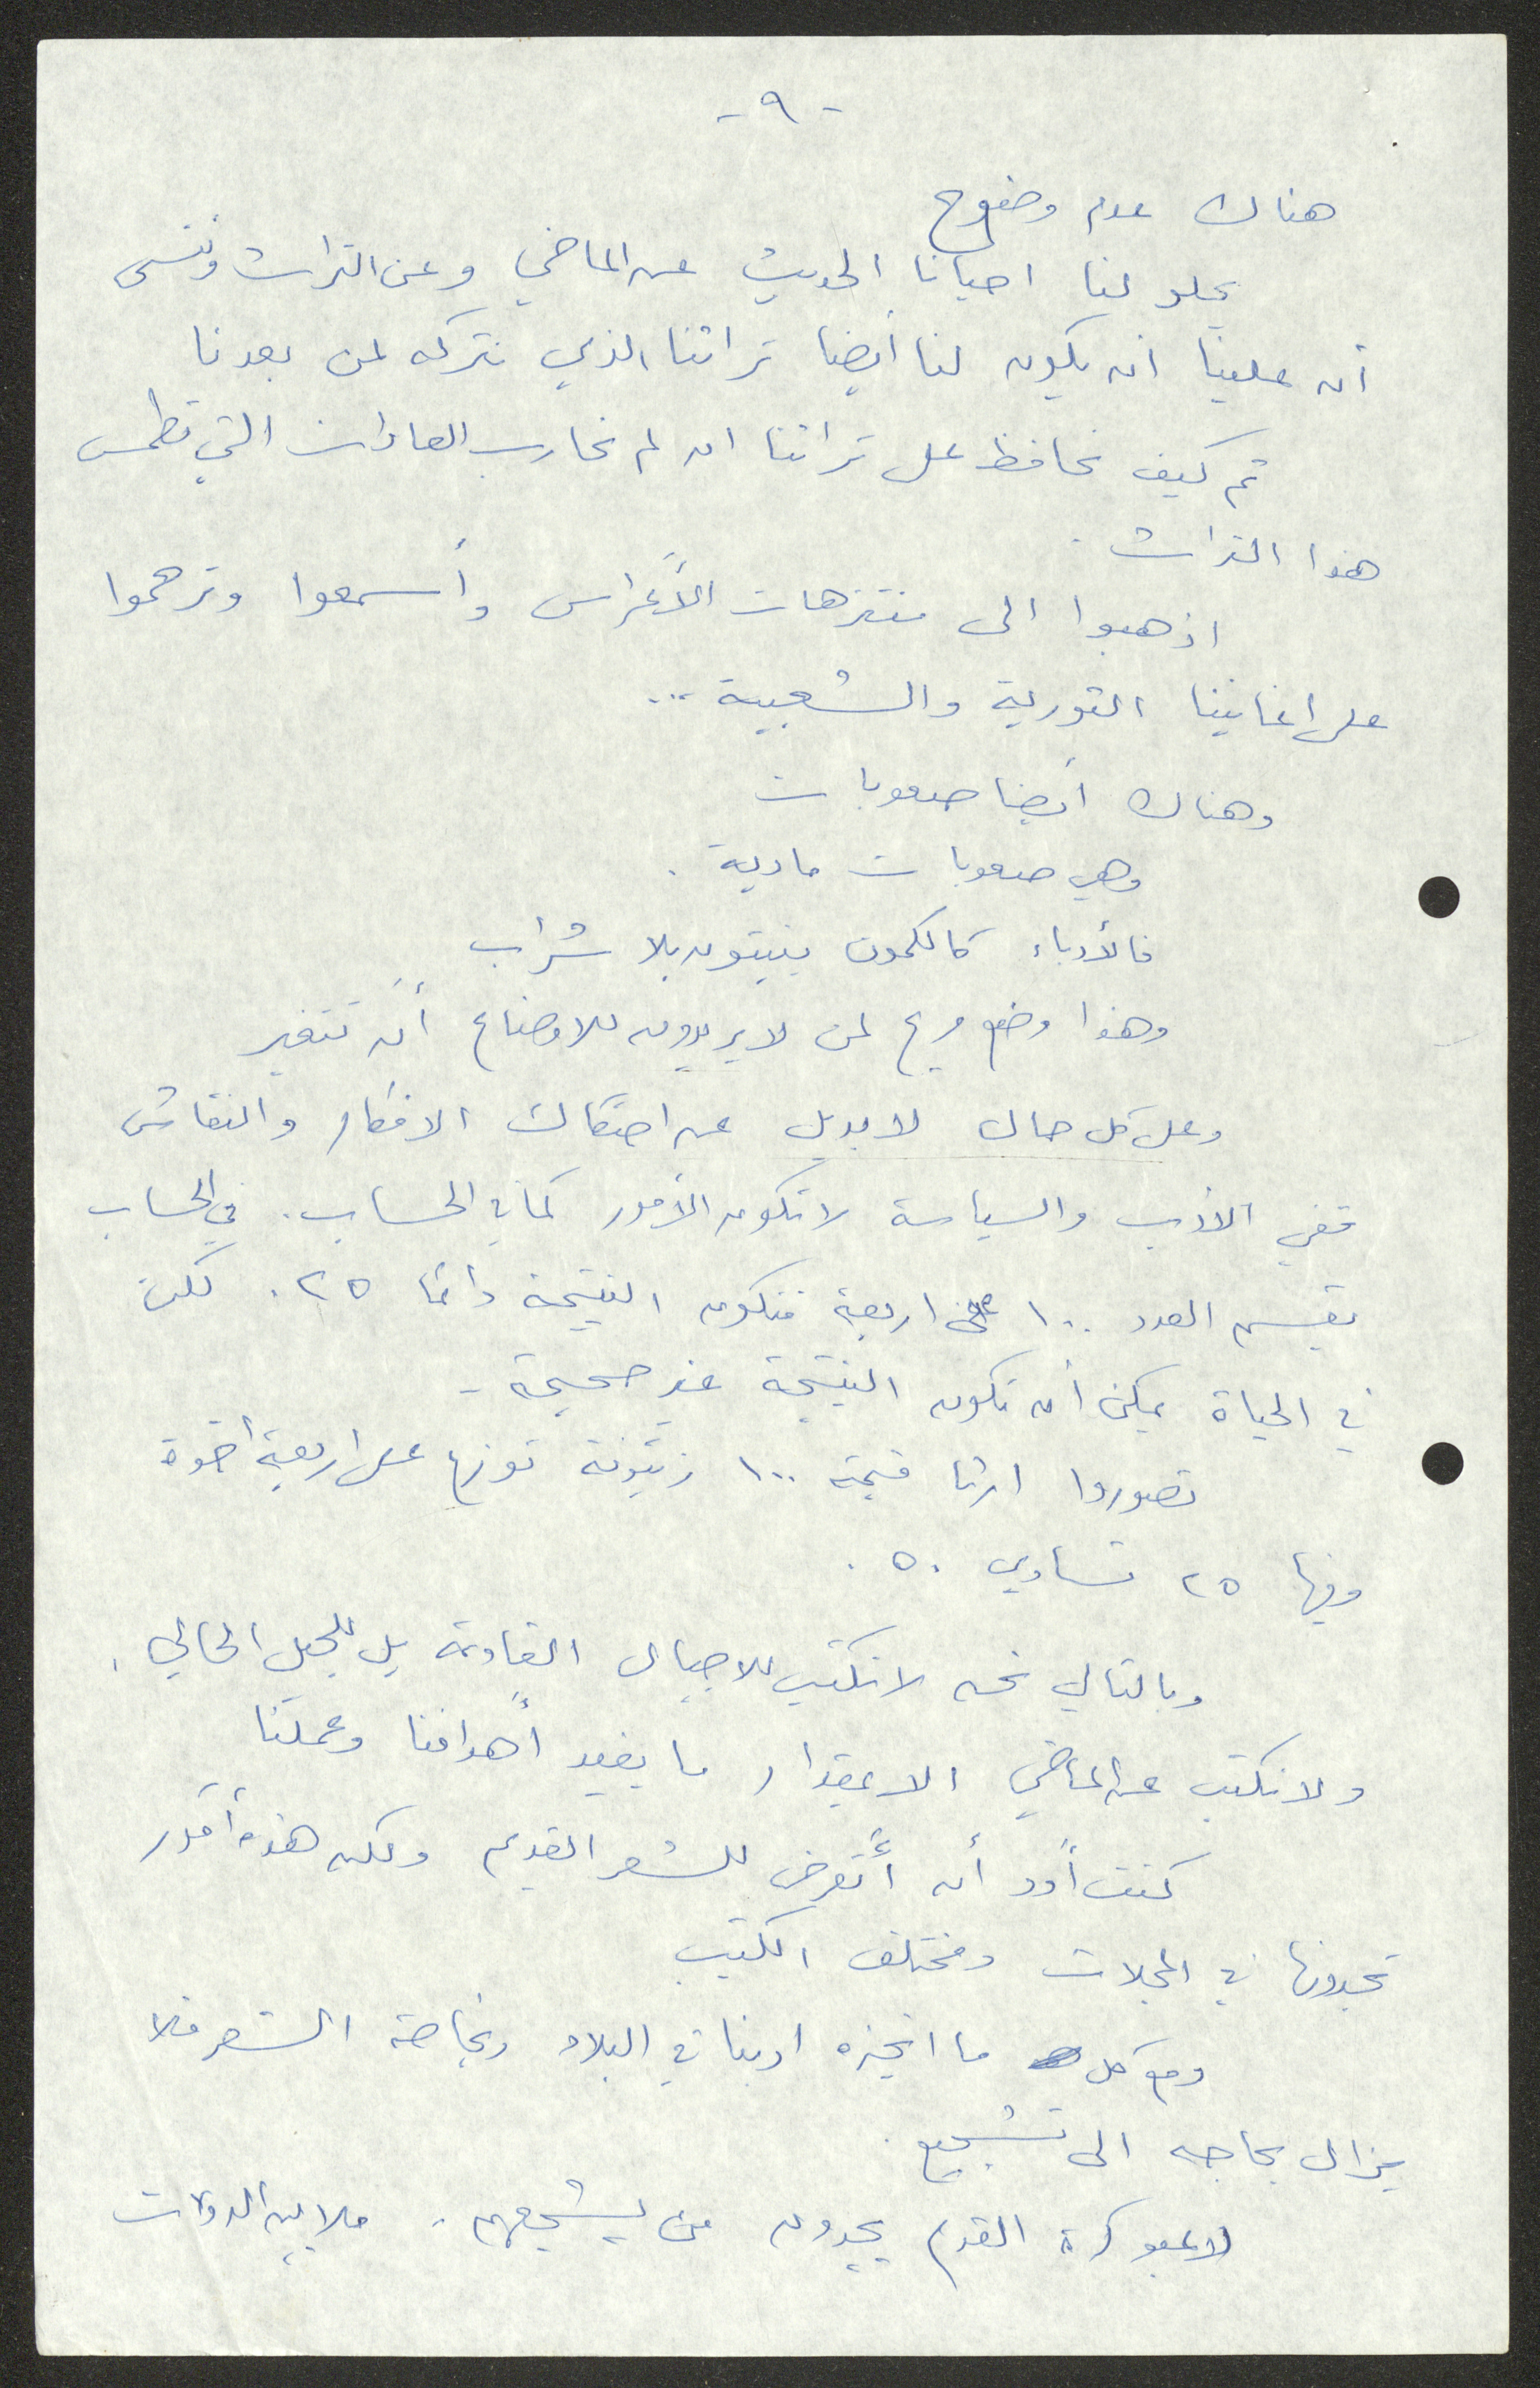 - ٩ -
هناك عدم وضوح
يحلو لنا احيانا الحديث عن الماضي وعن التراث وننسى
أن علينا ان يكون لنا أيضا تراثنا الذي نتركه لمن بعدنا
ثم كيف نحافظ على تراثنا ان لم نحارب العادات التي تطمس
هذا التراث .
اذهبوا الى منتزهات الأعراس وأسمعوا وترحموا
على اغانينا الثورية والشعبية ...
وهناك أيضا صعوبات
وهي صعوبات مادية .
فالأدباء كالكمون ينبتون بلا شراب
وهذا وضع مريح لمن لا يريدون للاوضاع أن تتغير
وعلى كل حال لا بديل عن احتكاك الافكار والنقاش
ففي الأدب والسياسة لا تكون الأمور كما في الحساب . في الحساب
يقسم العدد ١٠٠ على اربعة فتكون النتيجة دائما ٢٥ . لكن
في الحياة يمكن أن تكون النتيجة غير صحيحة -
تصوروا ارثا قيمته ١٠٠ زيتونة توزع على اربعة أخوة
وفيها ٢٥ تساوي ٥٠ .
وبالتالي نحن لا نكتب للاجيال القادمة بل للجيل الحالي .
ولا نكتب عن الماضي الا بمقدار ما يفيد أهدافنا وعملنا
كنت أود أن أتعرض للشعر القديم ولكن هذه أمور
تجدونها في المجلات ومختلف الكتب
ومع كل ما انجزه ادبنا في البلاد وبخاصة الشعر فلا
يزال بحاجه الى تشجيع .
لاعبو كرة القدم يجدون من يشجعهم . ملايين الدولات